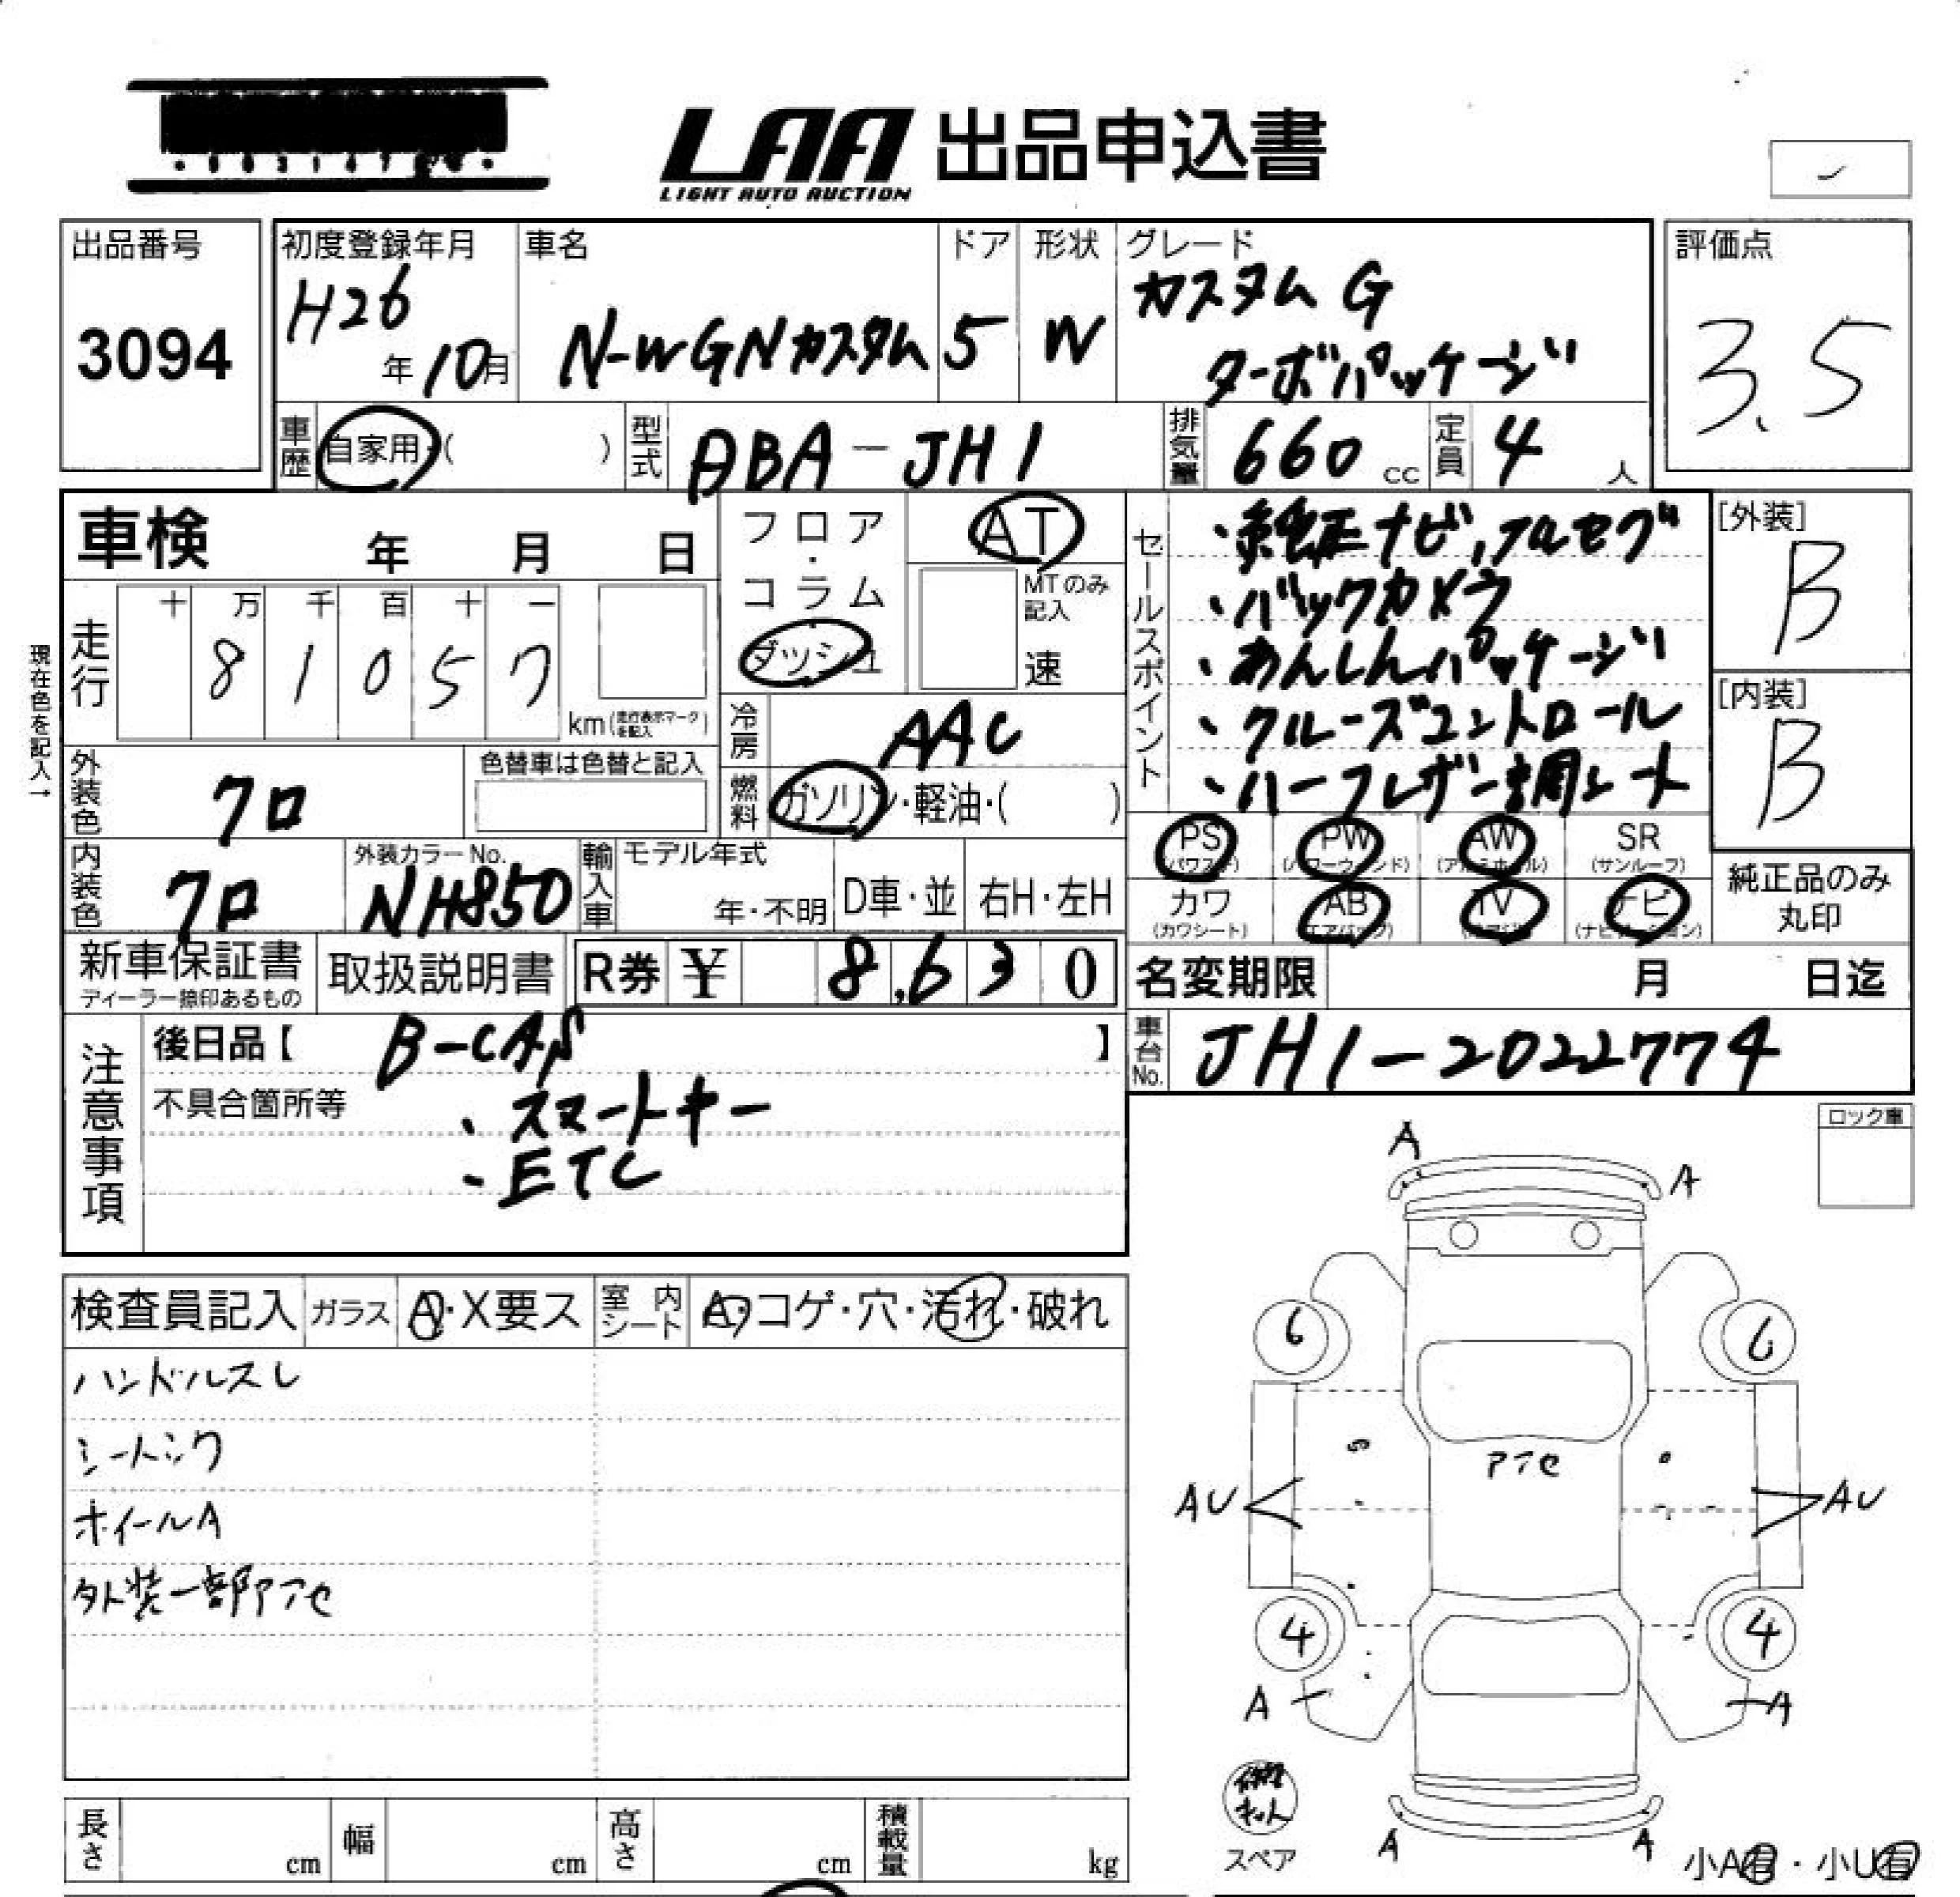 LAA 出品申込書
LIGHT AUTO AUCTION
出品番号
3094
初度登録年月
H26年10月
車名
N-WGNカスタム
ドア
5
形状
W
グレード
カスタム G
ターボパッケージ
評価点
3.5
車歴 自家用・( )
型式 DBA-JH1
排気量 660 cc
定員 4 人
車検 年 月 日
フロア・コラム・ダッシュ
AT
MTのみ記入
速
セールスポイント
・純正ナビ,フルセグ
・バックカメラ
・あんしんパッケージ
・クルーズコントロール
・ハーフレザー調シート
[外装]
B
[内装]
B
現在色を記入→
走行
十 万 千 百 十 一
8 1 0 5 7
km (走行表示マークを記入)
冷房 AAC
外装色 クロ
色替車は色替と記入
燃料 ガソリン・軽油・( )
内装色 クロ
外装カラーNo.
NH850
輸入車
モデル年式
年・不明
D車・並
右H・左H
PS (パワステ)
PW (パワーウィンド)
AW (アルミホイル)
SR (サンルーフ)
カワ (カワシート)
AB (エアバッグ)
TV
ナビ (ナビゲーション)
純正品のみ
丸印
新車保証書
ディーラー捺印あるもの
取扱説明書
R券 ¥ 8,630
名変期限 月 日迄
注意事項
後日品【 B-CAS 】
不具合箇所等
・スマートキー
・ETC
車台No. JH1-2022774
ロック車
検査員記入
ガラス A・X要ス
室内シート A・コゲ・穴・汚れ・破れ
ハンドルスレ
シートシワ
ホイールA
外装一部アセ
A
A
6
6
アセ
AU
AU
4
4
A
A
修理キット
スペア
A
A
小A有・小U有
長さ cm
幅 cm
高さ cm
積載量 kg